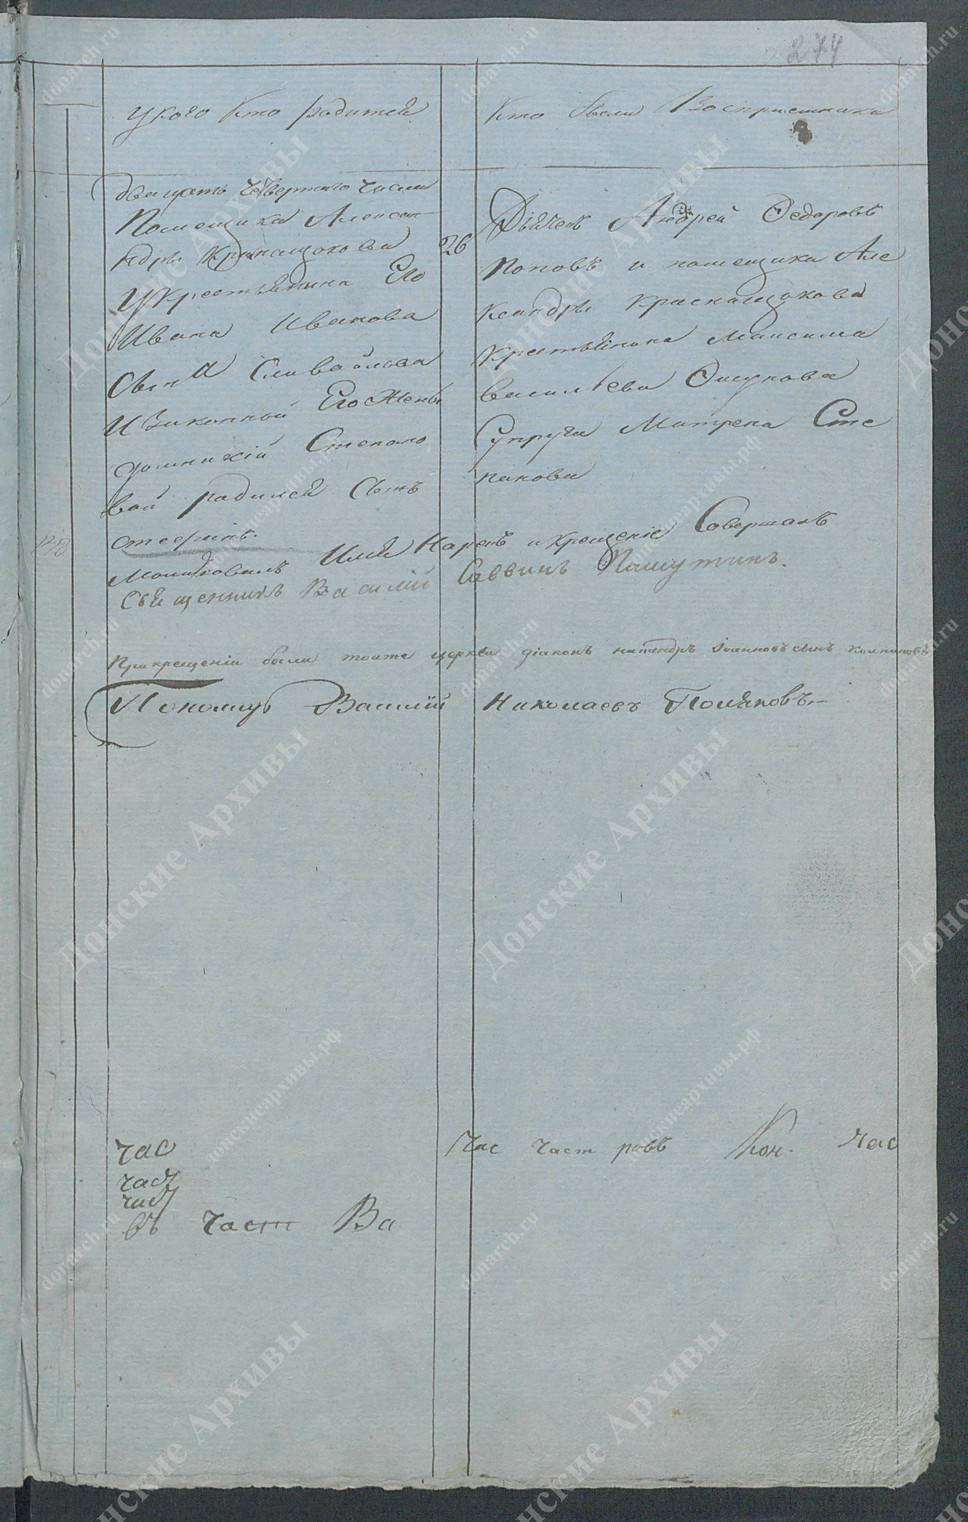 274
У кого кто родился
Кто были Восприемники
двацать четвертаго числа
Помещика Алексан
ндры Краснащокова
У Крестьянина Его
Ивана Иванова
Сына
И Законной Его Жены
Степано
вой родился Сынъ
26
Дьячекъ Андрей Федоровъ
Поповъ и помещика Але
ксандры Краснащокова
Крестьянина Максима
Васильева
Супруга Матрена Сте
панова
Молитвовалъ Имя Нарекъ и крещение Совершалъ
Священникъ Василій Саввинъ
При крещеніи были тоиже церкви діаконъ Іоанновъ сынъ
Пономарь Василій Николаевъ Поляковъ
час
Час част ровъ Коч. час
част
част
въ част Ва
Донские Архивы
donarch.ru
донскиеархивы.рф